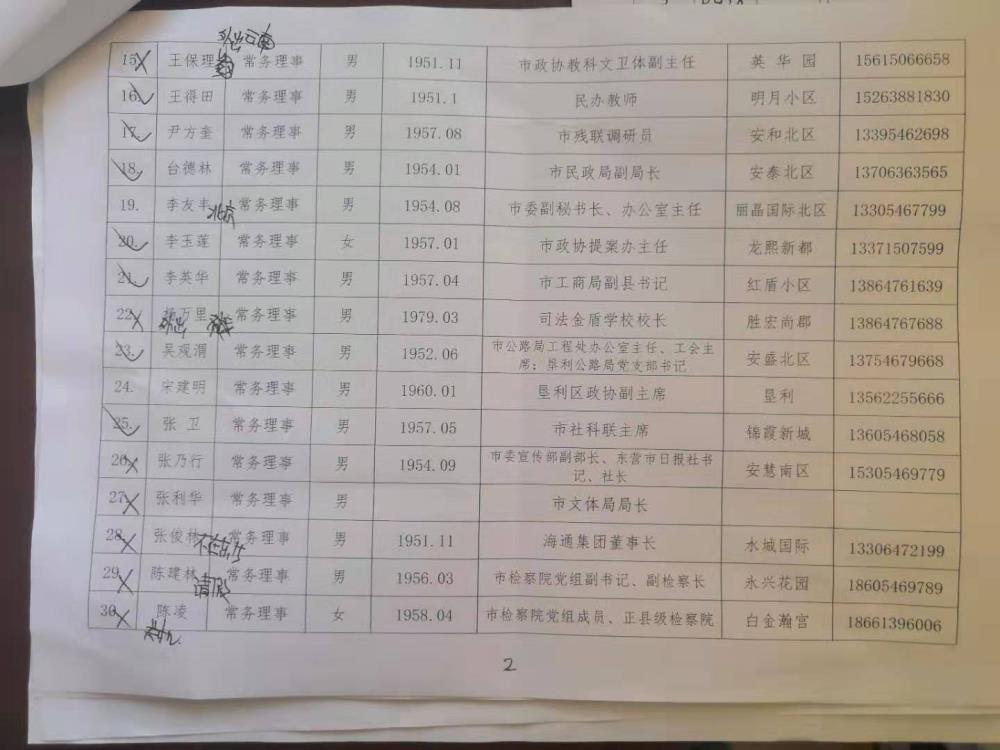 外出云南
15. 王保理 常务理事 男 1951.11 市政协教科文卫体副主任 英华园 15615066658
16. 王得田 常务理事 男 1951.1 民办教师 明月小区 15263881830
17. 尹方奎 常务理事 男 1957.08 市残联调研员 安和北区 13395462698
18. 台德林 常务理事 男 1954.01 市民政局副局长 安泰北区 13706363565
19. 李友丰 北京 常务理事 男 1954.08 市委副秘书长、办公室主任 丽晶国际北区 13305467799
20. 李玉莲 常务理事 女 1957.01 市政协提案办主任 龙熙新都 13371507599
21. 李英华 常务理事 男 1957.04 市工商局副县书记 红盾小区 13864761639
22. 万里 外出 常务理事 男 1979.03 司法金盾学校校长 胜宏尚郡 13864767688
23. 吴观渭 常务理事 男 1952.06 市公路局工程处办公室主任、工会主
席；垦利公路局党支部书记 安盛北区 13754679668
24. 宋建明 常务理事 男 1960.01 垦利区政协副主席 垦利 13562255666
25. 张卫 常务理事 男 1957.05 市社科联主席 锦霞新城 13605468058
26. 张乃行 常务理事 男 1954.09 市委宣传部副部长、东营市日报社书
记、社长 安慧南区 15305469779
27. 张利华 常务理事 男 市文体局局长
28. 张俊林 常务理事 男 1951.11 海通集团董事长 水城国际 13306472199
29. 陈建林 请假 常务理事 男 1956.03 市检察院党组副书记、副检察长 永兴花园 18605469789
30. 陈凌 常务理事 女 1958.04 市检察院党组成员、正县级检察院 白金瀚宫 18661396006
2